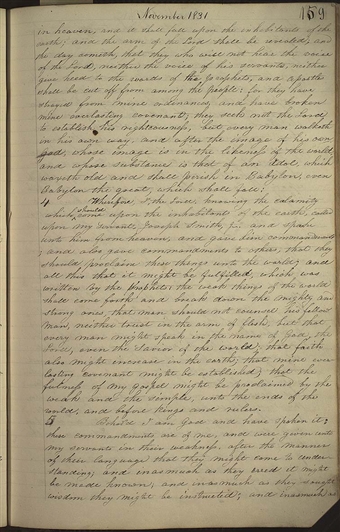 November 1831
159
in heaven, and it shall fall upon the inhabitants of the
earth; and the arm of the Lord shall be revealed; and
the day cometh, that they who will not hear the voice
of the Lord, neither the voice of his servants, neither
give heed to the words of the prophets, and apostles
shall be cut off from among the people: for they have
strayed from mine ordinances, and have broken
mine everlasting covenant; they seek not the Lord
to establish his righteousness, but every man walketh
in his own way, and after the image of his own
god, whose image is in the likeness of the world
and whose substance is that of an Idol, which
waxeth old and shall perish in Babylon, even
Babylon the great, which shall fall:
4 Wherefore I the Lord, knowing the calamity
which should come upon the inhabitants of the earth, called
upon my servant, Joseph Smith, jr. and spake
unto him from heaven, and gave him commandments
; and also gave commandments to others, that they
should proclaim these things unto the world; and
all this that it might be fulfilled, which was
written by the prophets; the weak things of the world
shall come forth and break down the mighty and
strong ones; that man should not counsel his fellow
man, neither trust in the arm of flesh, but that
every man might speak in the name of God, the
Lord, even the Savior of the world; that faith
also might increase in the earth; that mine ever
lasting covenant might be established; that the
fulness of my gospel might be proclaimed by the
weak and the simple, unto the ends of the
world, and before kings and rulers.
5 Behold I am God and have spoken it;
these commandments are of me, and were given unto
my servants in their weakness, after the manner
of their language that they might come to under
standing; and inasmuch as they erred it might
be made known; and inasmuch as they sought
wisdom they might be instructed; and inasmuch as